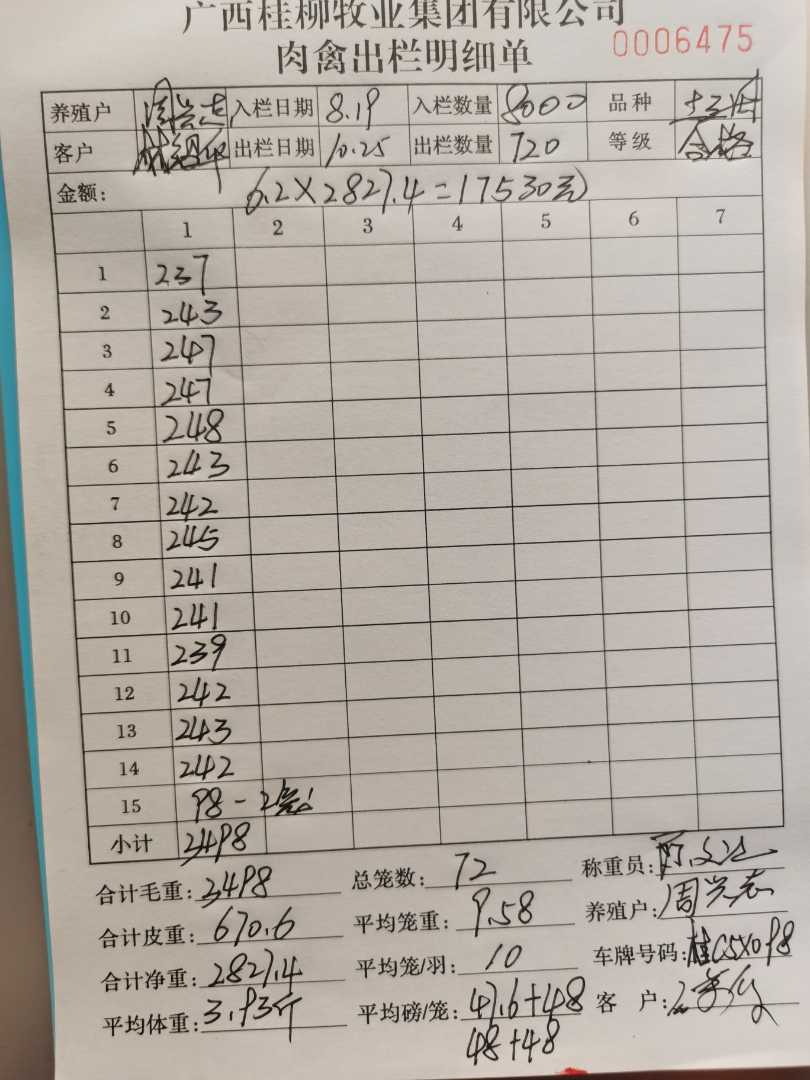 广西桂柳牧业集团有限公司
肉禽出栏明细单 0006475
养殖户 周兴志 入栏日期 8.19 入栏数量 8000 品种
客户 出栏日期 10.25 出栏数量 720 等级 合格
金额: 6.2×2827.4=17530元
1 2 3 4 5 6 7
1 237
2 243
3 247
4 247
5 248
6 243
7 242
8 245
9 241
10 241
11 239
12 242
13 243
14 242
15 98-2笼
小计 3498
合计毛重: 3498 总笼数: 72 称重员:
合计皮重: 670.6 平均笼重: 9.58 养殖户: 周兴志
合计净重: 2827.4 平均笼/羽: 10 车牌号码: 桂C5X098
平均体重: 3.93斤 平均磅/笼: 47.6+48 客 户:
48+48